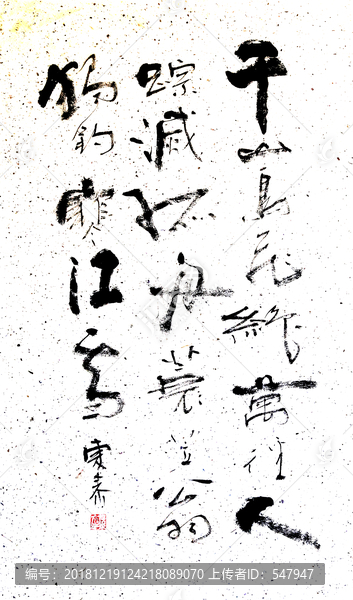 千山鳥飛絶萬徑人
踪滅孤舟蓑笠翁
独釣寒江雪
编号：20181219124218089070 上传者ID：547947